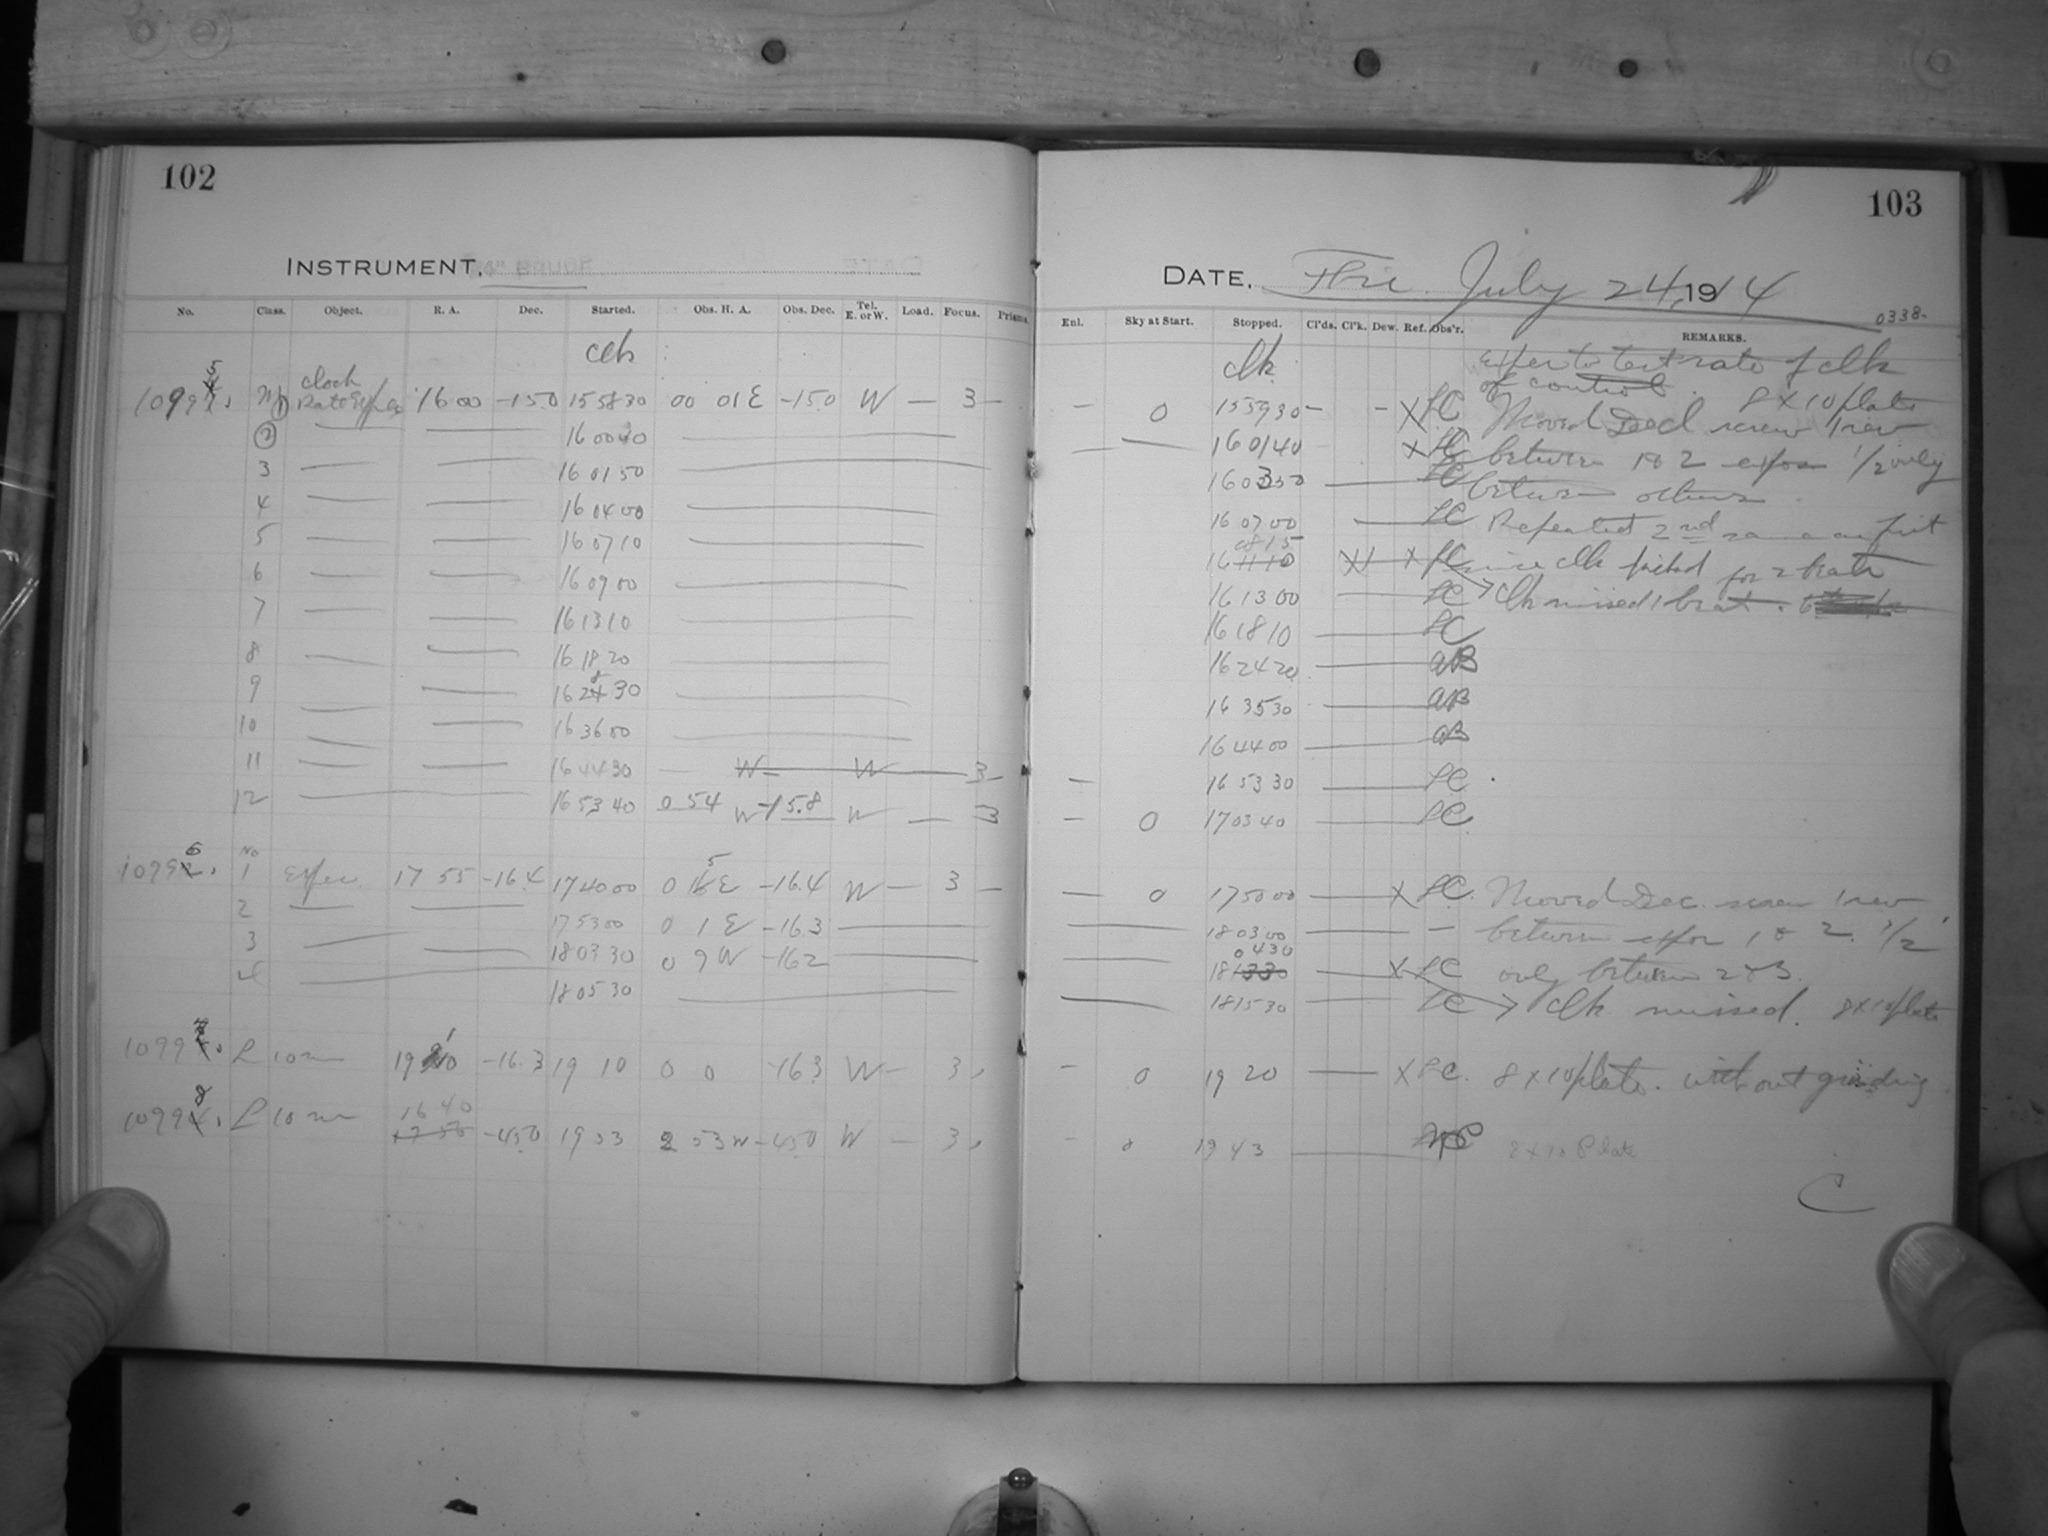 102
INSTRUMENT,
No. Class. Object. R. A. Dec. Started. Obs. H. A. Obs. Dec. Tel. E. or W. Load. Focus. Prisms.
clk
1099 clock
Rate 16 00 -15.0 15 58 30 00 01 E -15.0 W — 3 —
2 16 00 40
3 16 01 50
4 16 04 00
5 16 07 10
6 16 09 00
7 16 13 10
8 16 18 20
9 16 24 30
10 16 36 00
11 16 44 30 W — W — 3 —
12 16 53 40 0 54 W -15.8 W — 3
No
1099 6 1 Exper. 17 55 -16.4 17 40 00 0 15 E -16.4 W — 3 —
2 17 53 00 0 1 E -16.3
3 18 03 30 0 9 W -16.2
4 18 05 30
1099 L 10 m 19 10 -16.3 19 10 0 0 -16.3 W — 3
1099 8 L 10 m 16 40
17 50 -45.0 19 33 2 53 W -45.0 W — 3
103
DATE, Fri. July 24, 1914
0338-
Enl. Sky at Start. Stopped. Cl'ds. Cl'k. Dew. Ref. Obs'r. REMARKS.
clk
Exper to test rate of clk
of control. 8 x 10 plate
— 0 15 59 30 — — X LC Moved Decl screw 1 rev
16 01 40 X LC between 1 & 2 expos 1/2 only
16 03 50 LC between others
16 07 00 LC Repeated 2nd same as first
08 15
16 11 10 X X LC since clk failed for 2 beats
16 13 00 LC clk missed 1 beat.
16 18 10 LC
16 24 20 aB
16 35 30 aB
16 44 00 aB
— 16 53 30 LC
— 0 17 03 40 LC
— 0 17 50 00 X LC. Moved Dec. screw 1 rev
18 03 00 — between expos 1 & 2. 1/2
04 30
18 13 30 X LC only between 2 & 3.
18 15 30 LC clk missed. 8 x 10 plate
— 0 19 20 X LC. 8 x 10 plate. without guiding
— 0 19 43 8 x 10 Plate
C